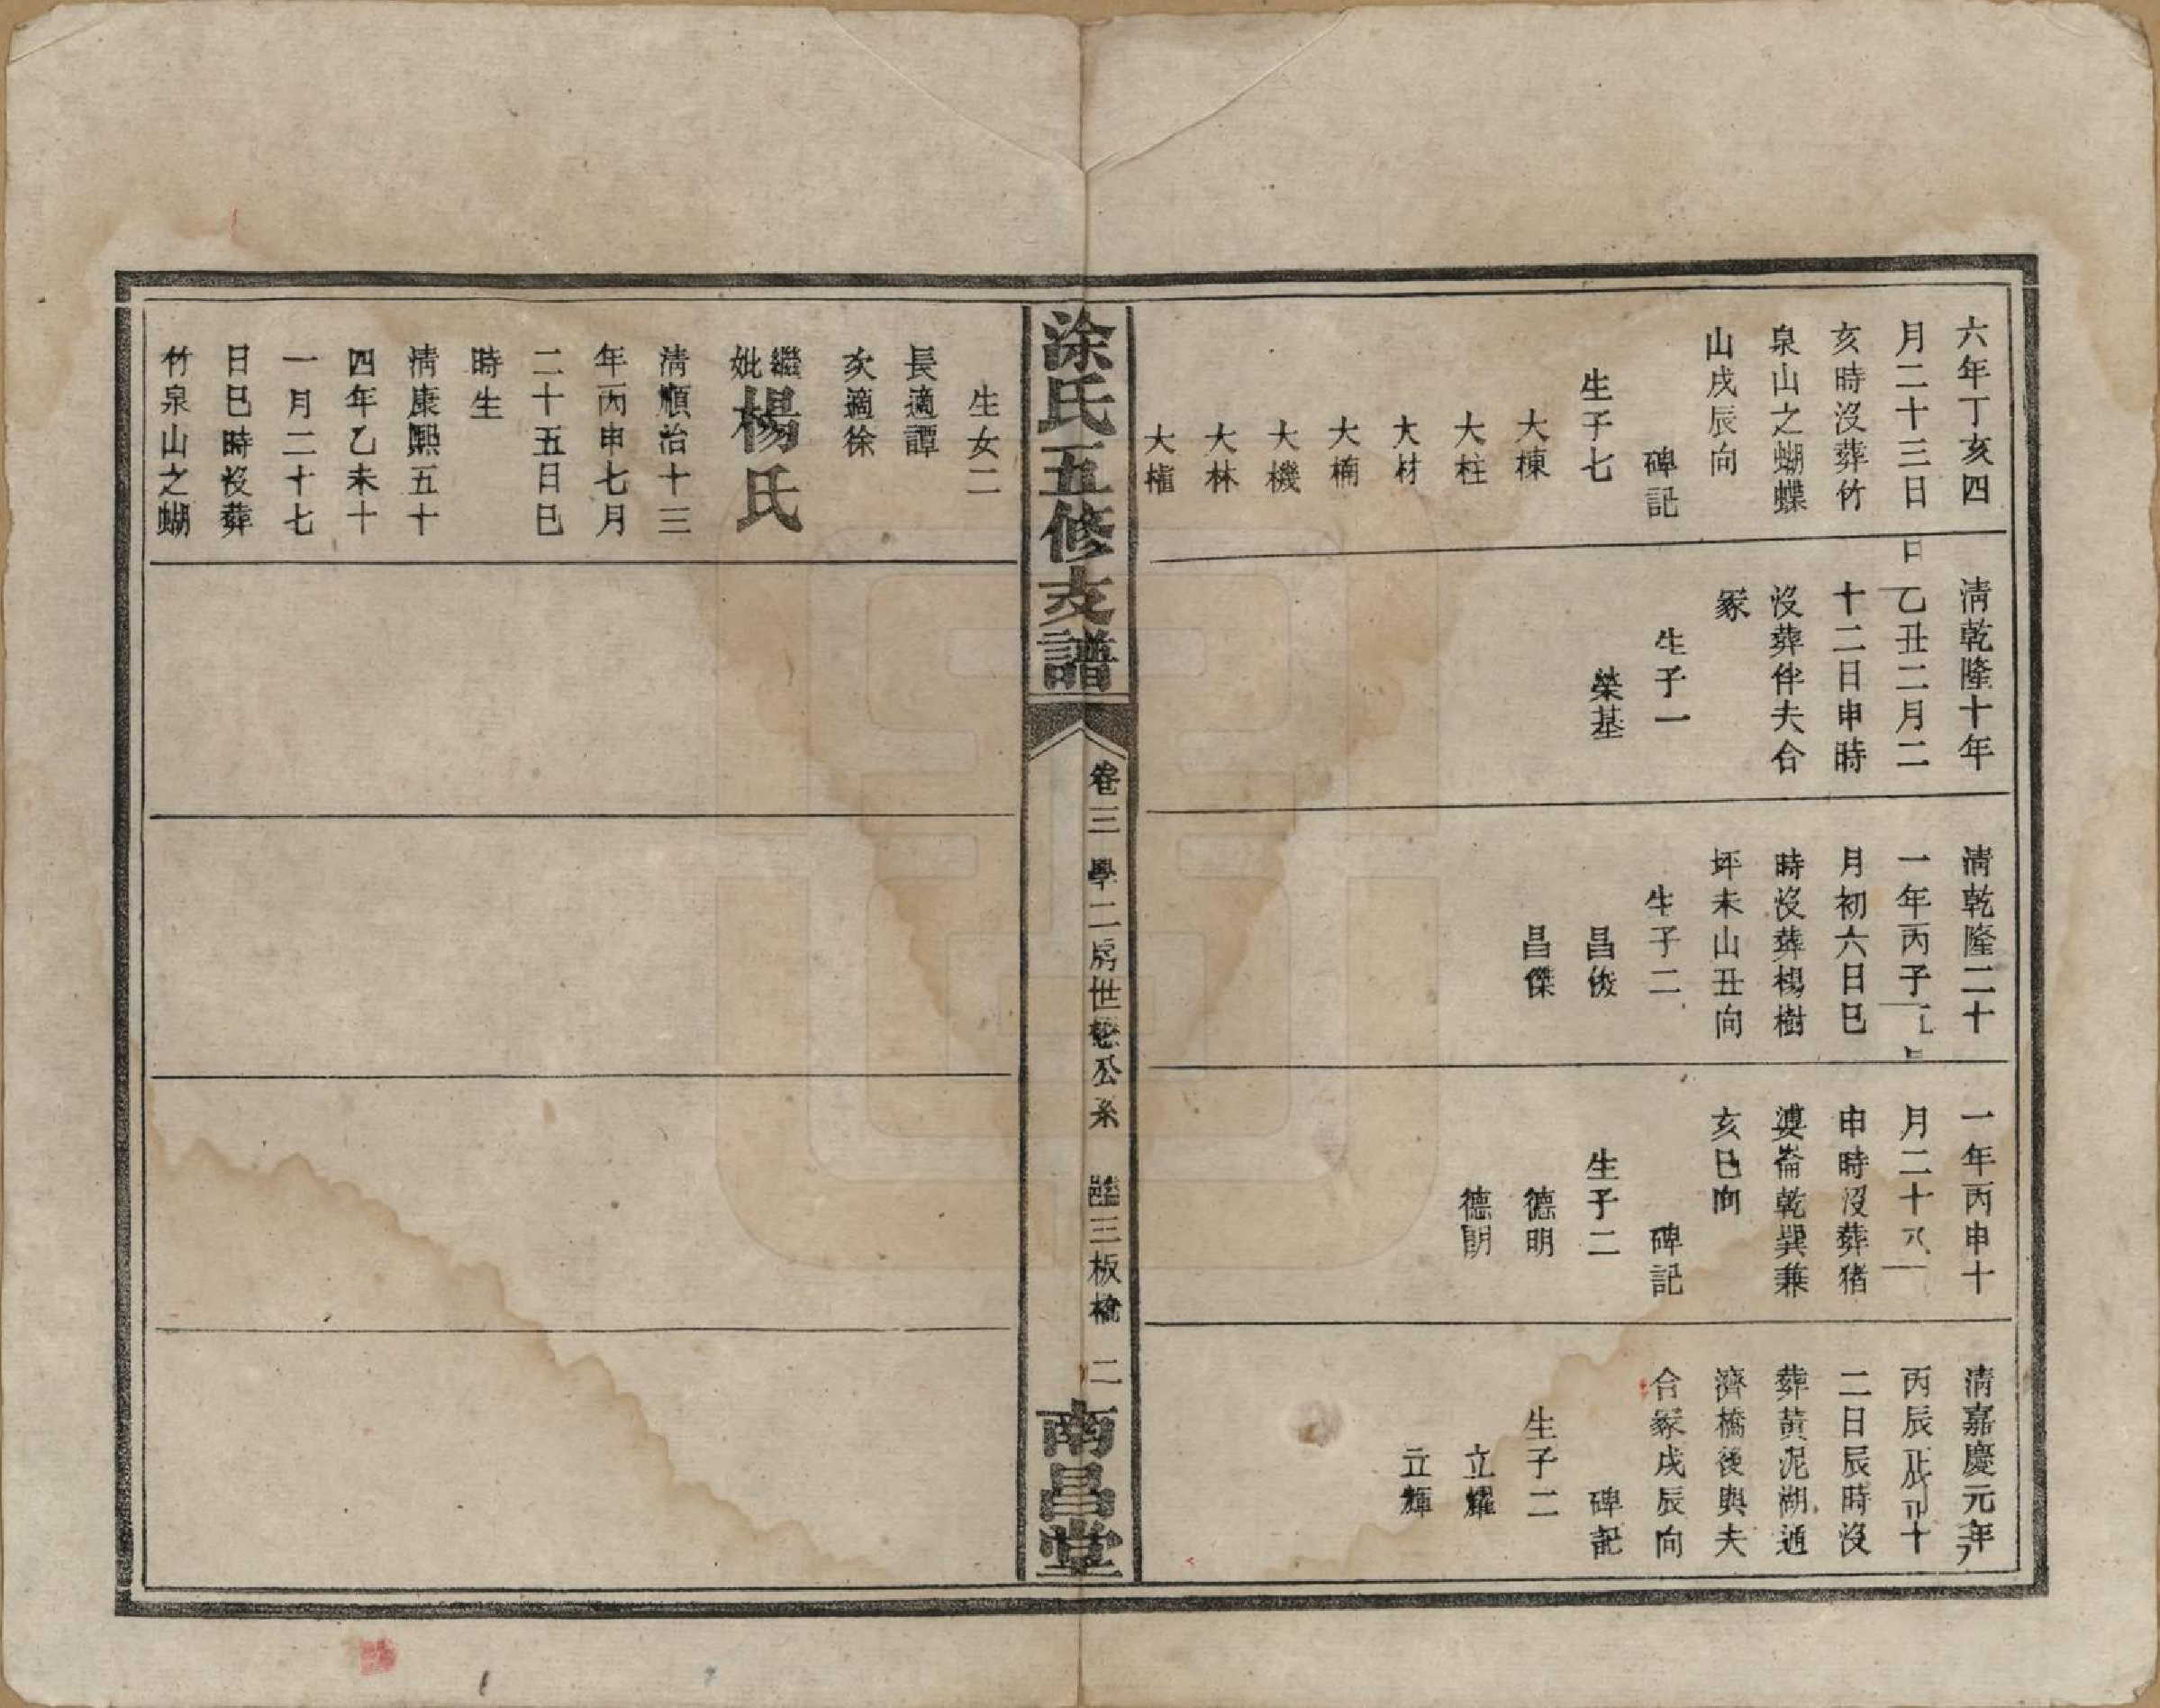 六年丁亥四
月二十三日
亥時沒葬竹
泉山之蝴蝶
山戌辰向
碑記
生子七
大棟
大柱
大材
大楠
大機
大林
大植
清乾隆十年
乙丑二月二
十二日申時
沒葬伴夫合
冢
生子一
榮基
清乾隆二十
一年丙子
月初六日巳
時沒葬楊樹
坪未山丑向
生子二
昌俊
昌傑
一年丙申十
月二十八
申時沒葬猪
婆崙乾巽兼
亥巳向
碑記
生子二
德明
德朗
清嘉慶元年
丙辰 十
二日辰時沒
葬黃泥湖通
濟橋後與夫
合冢戌辰向
碑記
生子二
立耀
立輝
涂氏五修支譜
卷三 學二房世懋公系 三板橋 二
南昌堂
生女二
長適譚
次適徐
繼妣楊氏
清順治十三
年丙申七月
二十五日巳
時生
清康熙五十
四年乙未十
一月二十七
日巳時沒葬
竹泉山之蝴